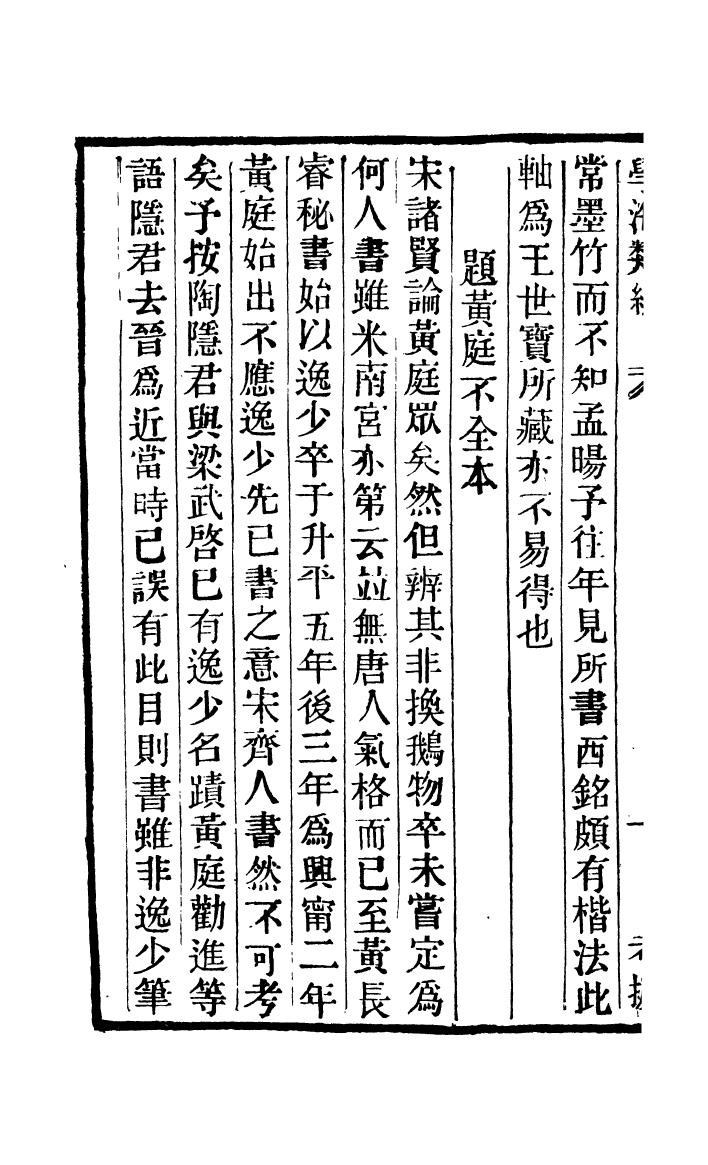 常墨竹而不知孟暘予往年見所書西銘頗有楷法此
軸爲王世寶所藏亦不易得也
題黃庭不全本
宋諸賢論黃庭眾矣然但辨其非換鵝物卒未嘗定爲
何人書雖米南宮亦第云並無唐人氣格而已至黃長
睿秘書始以逸少卒于升平五年後三年爲興甯二年
黃庭始出不應逸少先已書之意宋齊人書然不可考
矣予按陶隱君與梁武啓已有逸少名蹟黃庭勸進等
語隱君去晉爲近當時已誤有此目則書雖非逸少筆